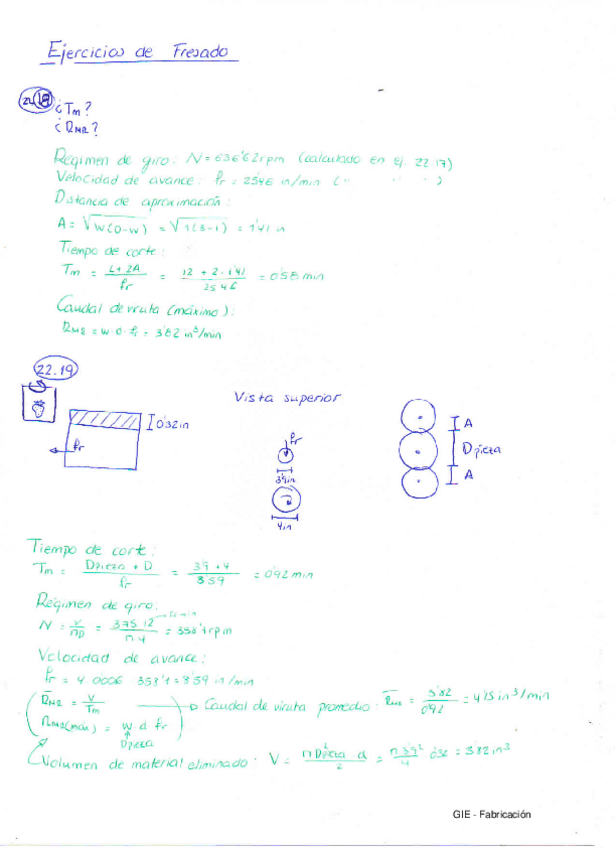 Ejercicios de Fresado
22.18 ¿Tm?
¿RMR?
Régimen de giro: N = 636'62 rpm (calculado en ej. 22.17)
Velocidad de avance: fr = 25'46 in/min ( " " " )
Distancia de aproximación:
A = √W(D-W) = √1(3-1) = 1'41 in
Tiempo de corte:
Tm = (L+2A)/fr = (12 + 2·1'41)/25'46 = 0'58 min
Caudal de viruta (máximo):
RMR = w·d·fr = 3'82 in³/min
22.19
Vista superior
0'32in
fr
fr
3'9in
4in
A
D pieza
A
Tiempo de corte:
Tm = (Dpieza + D)/fr = (3'9 + 4)/8'59 = 0'92 min
Régimen de giro:
N = v/πD = (375·12)/(π·4) = 358'1 rpm
Velocidad de avance:
fr = 4·0'006·358'1 = 8'59 in/min
RMR = V/Tm → Caudal de viruta promedio: RMR = 3'82/0'92 = 4'15 in³/min
RMR(máx) = w d fr
Dpieza
Volumen de material eliminado: V = (π D²pieza d)/ = (π 3'9²)/4 0'32 = 3'82 in³
GIE - Fabricación